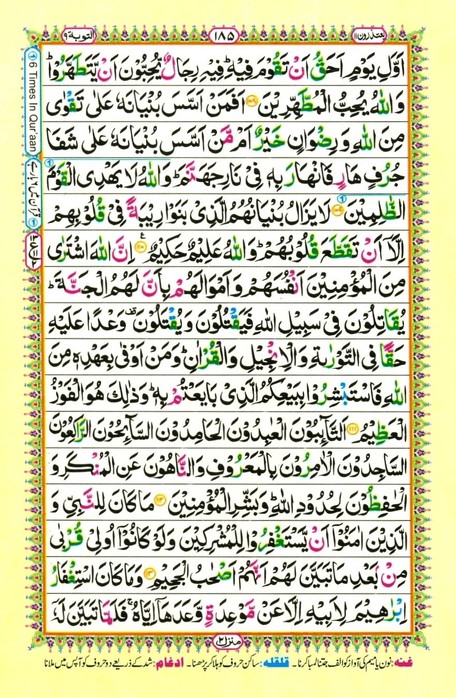 یعتذرون ۱۱
۱۸۵
التوبة ۹
اَوَّلِ یَوْمٍ اَحَقُّ اَنْ تَقُوْمَ فِیْهِؕ فِیْهِ رِجَالٌ یُّحِبُّوْنَ اَنْ یَّتَطَهَّرُوْاؕ
وَ اللّٰهُ یُحِبُّ الْمُطَّهِّرِیْنَ ۝۱۰۸ اَفَمَنْ اَسَّسَ بُنْیَانَهٗ عَلٰى تَقْوٰى
مِنَ اللّٰهِ وَ رِضْوَانٍ خَیْرٌ اَمْ مَّنْ اَسَّسَ بُنْیَانَهٗ عَلٰى شَفَا
جُرُفٍ هَارٍ فَانْهَارَ بِهٖ فِیْ نَارِ جَهَنَّمَؕ وَ اللّٰهُ لَا یَهْدِی الْقَوْمَ
الظّٰلِمِیْنَ ۝۱۰۹ لَا یَزَالُ بُنْیَانُهُمُ الَّذِیْ بَنَوْا رِیْبَةً فِیْ قُلُوْبِهِمْ
اِلَّاۤ اَنْ تَقَطَّعَ قُلُوْبُهُمْؕ وَ اللّٰهُ عَلِیْمٌ حَكِیْمٌ ۝۱۱۰ اِنَّ اللّٰهَ اشْتَرٰى
مِنَ الْمُؤْمِنِیْنَ اَنْفُسَهُمْ وَ اَمْوَالَهُمْ بِاَنَّ لَهُمُ الْجَنَّةَؕ
یُقَاتِلُوْنَ فِیْ سَبِیْلِ اللّٰهِ فَیَقْتُلُوْنَ وَ یُقْتَلُوْنَ وَعْدًا عَلَیْهِ
حَقًّا فِی التَّوْرٰىةِ وَ الْاِنْجِیْلِ وَ الْقُرْاٰنِؕ وَ مَنْ اَوْفٰى بِعَهْدِهٖ مِنَ
اللّٰهِ فَاسْتَبْشِرُوْا بِبَیْعِكُمُ الَّذِیْ بَایَعْتُمْ بِهٖؕ وَ ذٰلِكَ هُوَ الْفَوْزُ
الْعَظِیْمُ ۝۱۱۱ اَلتَّآىِٕبُوْنَ الْعٰبِدُوْنَ الْحٰمِدُوْنَ السَّآىِٕحُوْنَ الرّٰكِعُوْنَ
السّٰجِدُوْنَ الْاٰمِرُوْنَ بِالْمَعْرُوْفِ وَ النَّاهُوْنَ عَنِ الْمُنْكَرِ وَ
الْحٰفِظُوْنَ لِحُدُوْدِ اللّٰهِؕ وَ بَشِّرِ الْمُؤْمِنِیْنَ ۝۱۱۲ مَا كَانَ لِلنَّبِیِّ وَ
الَّذِیْنَ اٰمَنُوْۤا اَنْ یَّسْتَغْفِرُوْا لِلْمُشْرِكِیْنَ وَ لَوْ كَانُوْۤا اُولِیْ قُرْبٰى
مِنْۢ بَعْدِ مَا تَبَیَّنَ لَهُمْ اَنَّهُمْ اَصْحٰبُ الْجَحِیْمِ ۝۱۱۳ وَ مَا كَانَ اسْتِغْفَارُ
اِبْرٰهِیْمَ لِاَبِیْهِ اِلَّا عَنْ مَّوْعِدَةٍ وَّعَدَهَاۤ اِیَّاهُۚ فَلَمَّا تَبَیَّنَ لَهٗۤ
منزل ۲
6 Times In Qur'aan
غنه: نون یا میم کی آواز کو الف جتنا لمبا کرنا۔ قلقله: ساکن حروف کو ہلا کر پڑھنا۔ ادغام: شد کے ذریعے دو حروف کو آپس میں ملانا